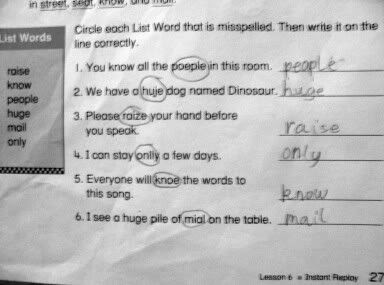 in street, seat, know, and mail.
List Words
Circle each List Word that is misspelled. Then write it on the
line correctly.
raise
know
people
huge
mail
only
1. You know all the poeple in this room. people
2. We have a huje dog named Dinosaur. huge
3. Please raize your hand before
you speak. raise
4. I can stay onlly a few days. only
5. Everyone will knoe the words to
this song. know
6. I see a huge pile of mial on the table. mail
Lesson 6 = Instant Replay 27